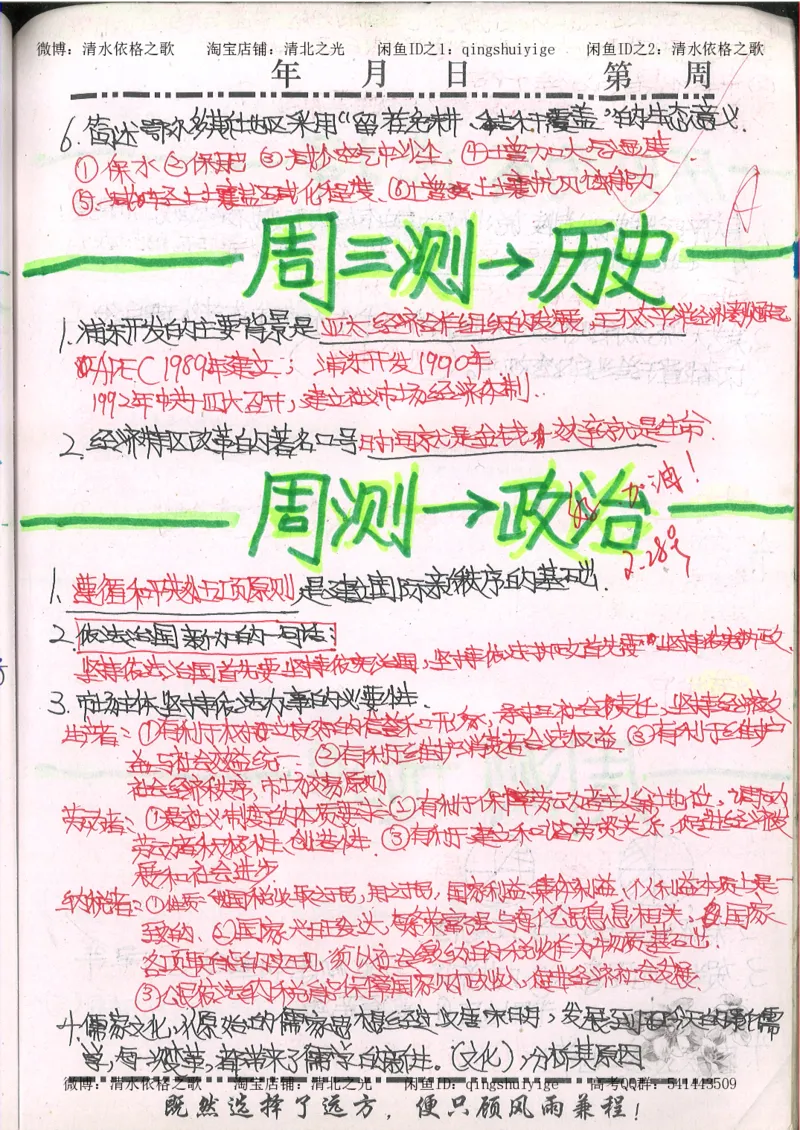 微博：清水依格之歌 淘宝店铺：清北之光 闲鱼ID之1：qingshuiyige 闲鱼ID之2：清水依格之歌
年 月 日 第 周
6. 简述鄂尔多斯地区采用“留茬免耕、秸秆覆盖”的生态意义.
①保水 ②保肥 ③减少空气中沙尘 ④增加大气湿度.
⑤减轻土壤盐碱化程度 ⑥增强土壤抗风蚀能力
A
周三测→历史
1. 浦东开发的主要背景是 亚太经济合作组织的发展,
APEC 1989年建立； 浦东开发1990年
1992年中共十四大召开，建立社会主义市场经济体制.
2. 经济特区改革的著名口号 时间就是金钱 效率就是生命.
周测→政治
加油！
2.28
1. 遵循和平共处五项原则 是建立国际新秩序的基础.
2. 依法治国新加的一句话：
坚持依法治国首先要坚持依宪治国，坚持依法执政首先要坚持依宪执政.
3. 市场主体坚持依法办事的必要性.
生产者：①有利于树立良好的信誉和形象，承担社会责任，坚持经济效
益与社会效益统一 ②有利于维护消费者合法权益 ③有利于维护
社会经济秩序，市场交易原则
劳动者：①是社会主义制度的本质要求 ②有利于保障劳动者主人翁地位，调动
劳动者积极性、创造性 ③有利于建立和谐劳资关系，促进经济发
展和社会进步
纳税者：① 我国税收取之于民，用之于民，国家利益、集体利益、个人利益本质上是一
致的 ②国家兴旺发达，繁荣富强与每个公民息息相关，国家
各项事业的实现，须以社会缴纳的税收作为物质基础
③公民依法纳税 保障国家财政收入，促进经济社会发展.
4. 儒家文化，从原始的儒家思想经过汉唐宋明，发展到今天的新儒
学，每一次变革，都带来了儒学的新生。（文化），分析其原因
微博：清水依格之歌 淘宝店铺：清北之光 闲鱼ID：qingshuiyige 高考QQ群：541443509
既然选择了远方，便只顾风雨兼程！